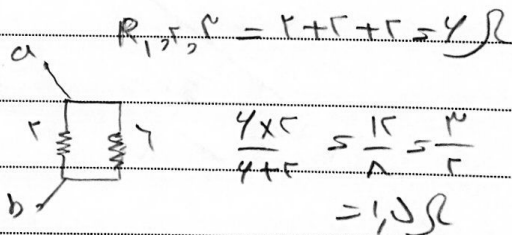 R۱,۲,۳ = ۲+۲+۲ = ۶Ω
a
۲ ۶
b
۶×۲ / ۶+۲ = ۱۲ / ۸ = ۳ / ۲
= ۱,۵Ω